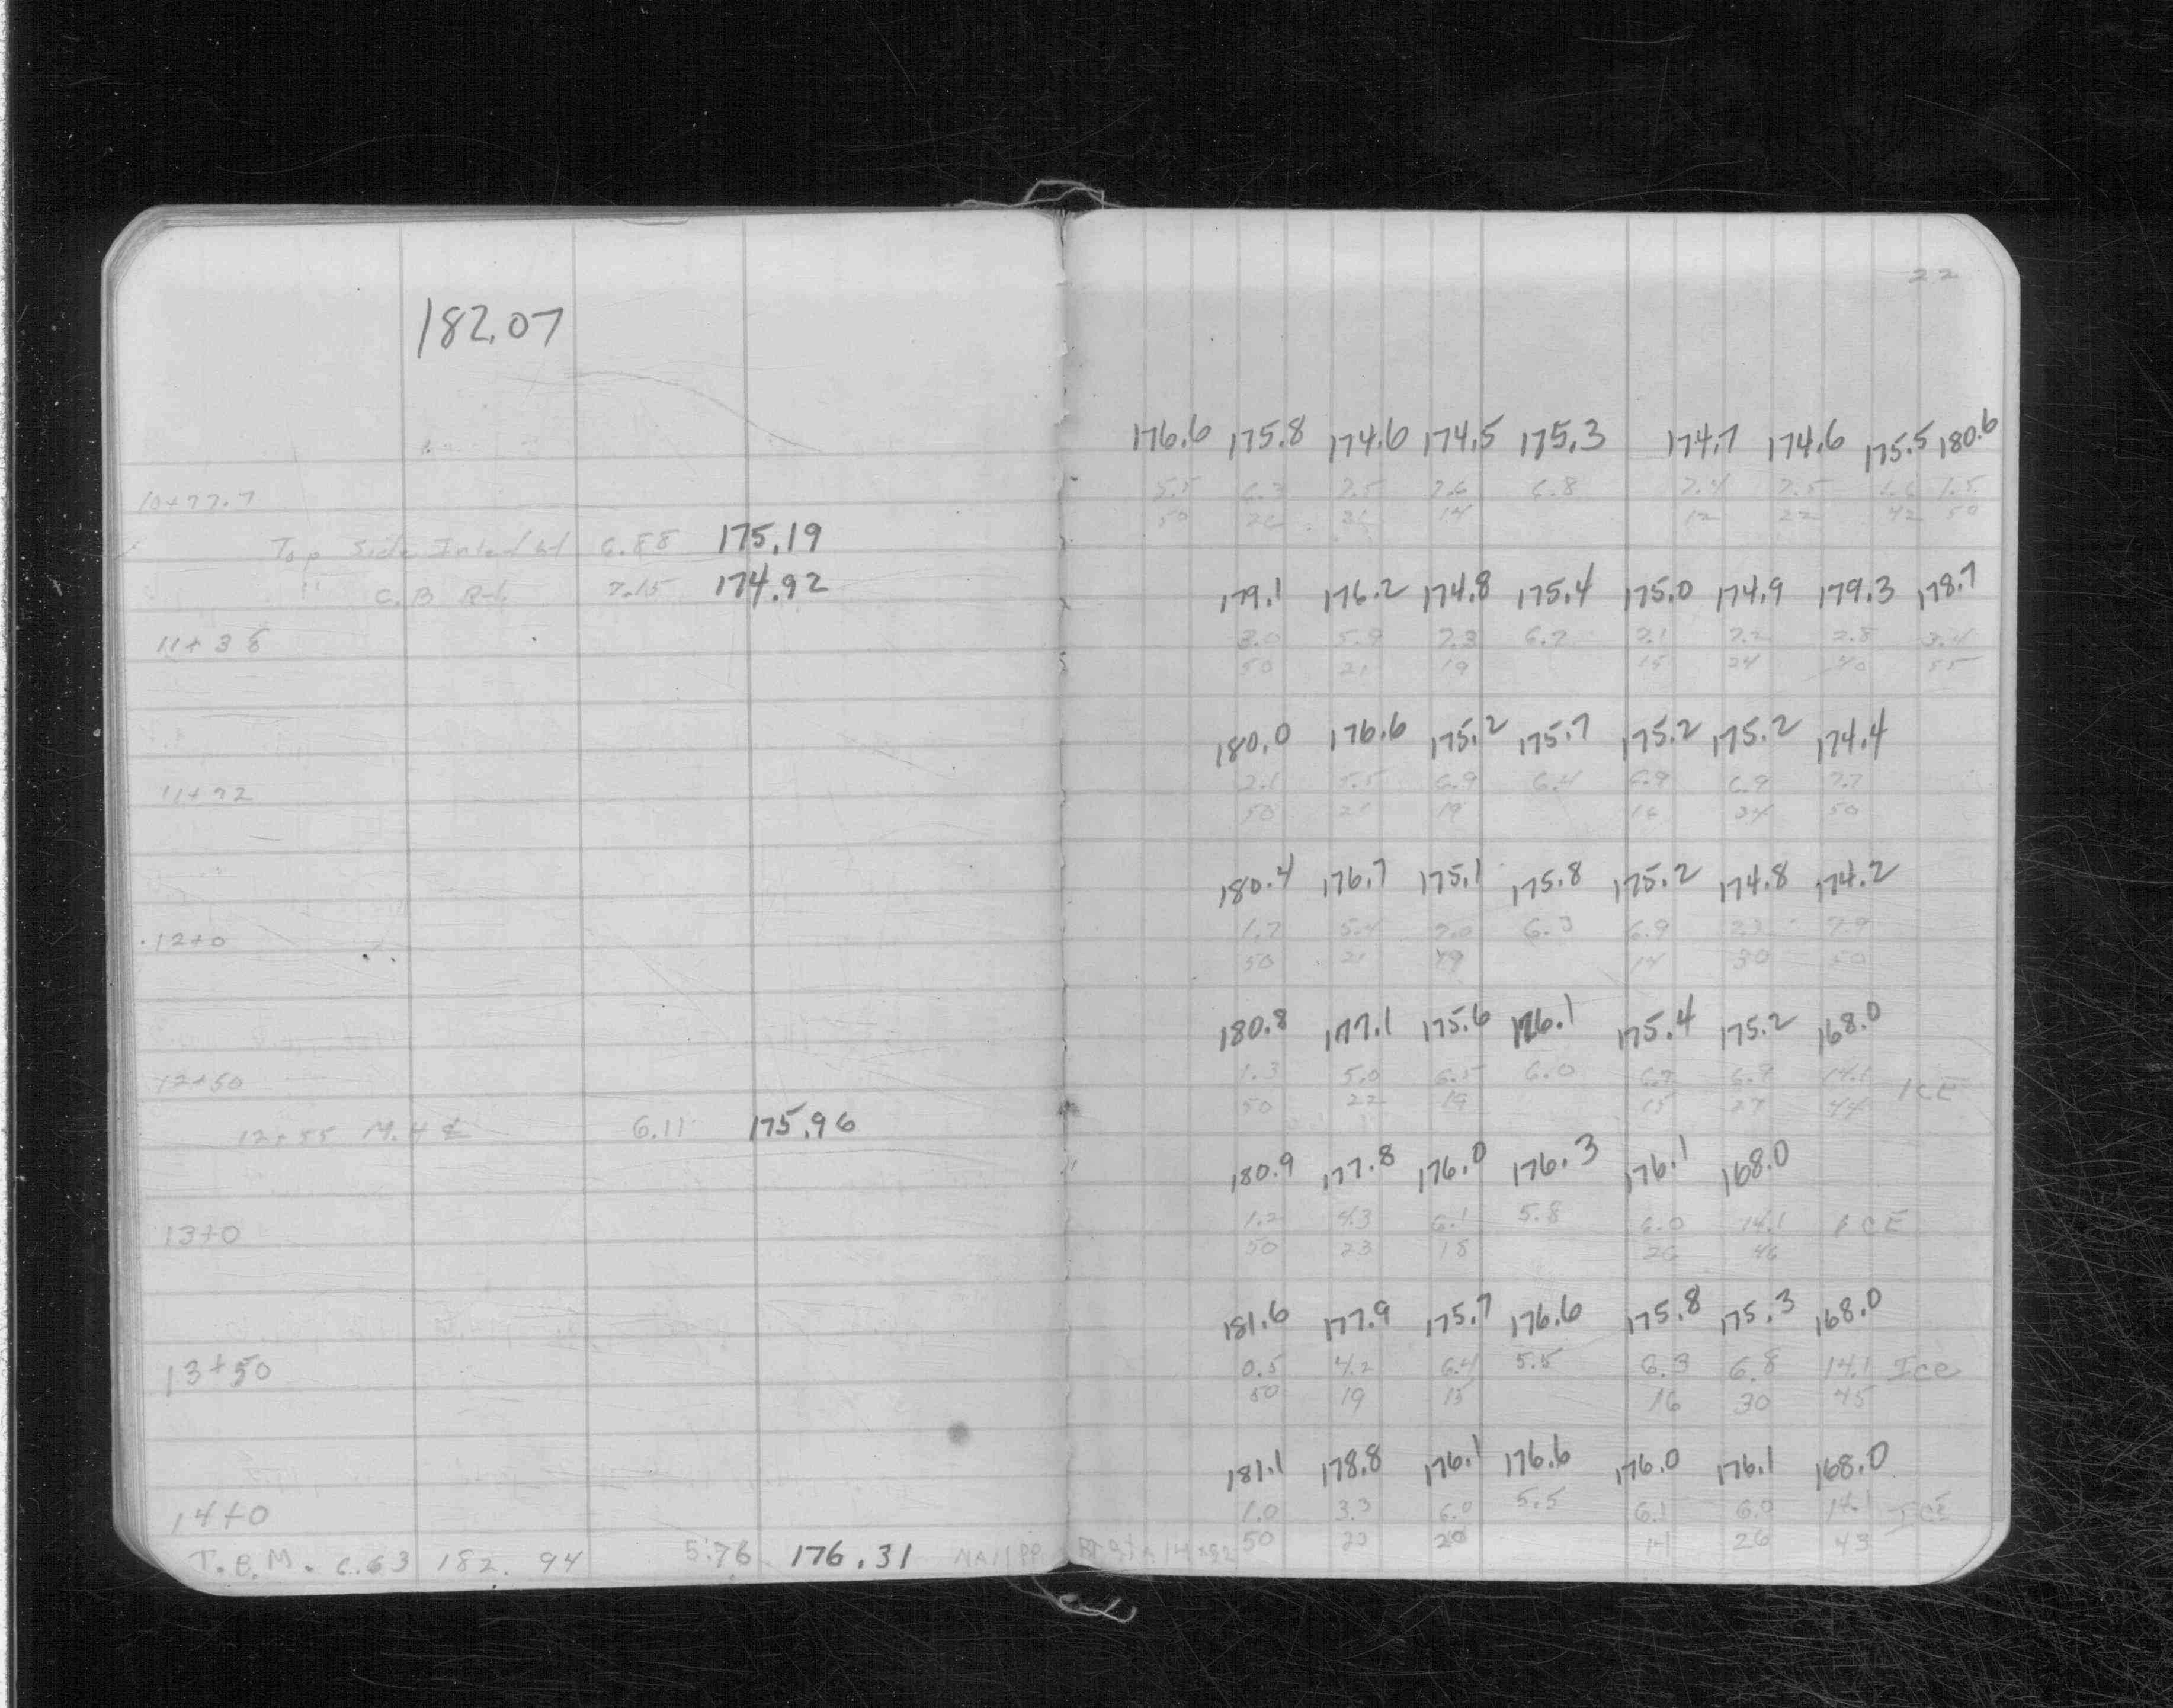 182.07
10+77.7
Top Side Inlet Lt 6.88 175.19
" C.B Rt. 7.15 174.92
11+38
11+72
12+0
12+50
12+55 M.H ℄ 6.11 175.96
13+0
13+50
14+0
T.B.M. 6.63 182.94 5.76 176.31 NAIL PP
22
176.6 175.8 174.6 174.5 175.3 174.7 174.6 175.5 180.6
5.5 6.3 7.5 7.6 6.8 7.4 7.5 6.6 1.5
50 14 12 22 42 50
179.1 176.2 174.8 175.4 175.0 174.9 179.3 178.7
3.0 5.9 7.3 6.7 7.1 7.2 2.8 3.4
50 21 19 15 24 40 55
180.0 176.6 175.2 175.7 175.2 175.2 174.4
2.1 5.5 6.9 6.4 6.9 6.9 7.7
50 21 19 16 34 50
180.4 176.7 175.1 175.8 175.2 174.8 174.2
1.7 5.4 7.0 6.3 6.9 7.3 7.9
50 21 19 14 30 50
180.8 177.1 175.6 176.1 175.4 175.2 168.0
1.3 5.0 6.5 6.0 6.7 6.9 14.1 ICE
50 22 19 15 27 44
180.9 177.8 176.0 176.3 176.1 168.0
1.2 4.3 6.1 5.8 6.0 14.1 ICE
50 23 18 26 46
181.6 177.9 175.7 176.6 175.8 175.3 168.0
0.5 4.2 6.4 5.5 6.3 6.8 14.1 Ice
50 19 15 16 30 45
181.1 178.8 176.1 176.6 176.0 176.1 168.0
1.0 3.3 6.0 5.5 6.1 6.0 14.1 ICE
50 23 20 14 26 43